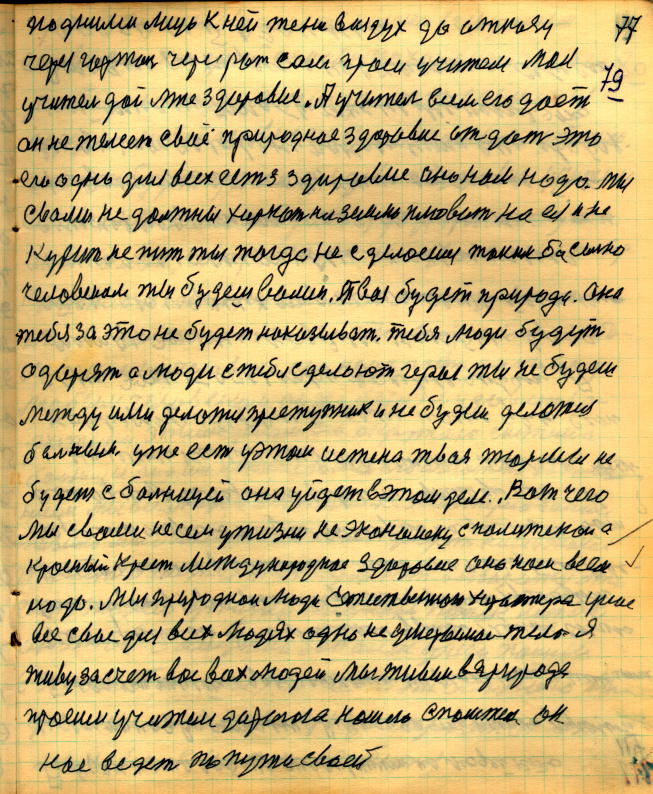 77
подними лицо к ней тени воздух до отказу
79
через гортан через рот сам проси учитель мой
учител дой мне здоровие. А учител всем его дает
он не жалеет своё природное здоровие отдат это
его одно для всех есть здоровие оно нам надо. мы
свами не должны харкат на землю плеват на ея и не
Курит не пит ты тогда не сделоеш таким
человеком ты будеш волии. Твоя будет природа. она
тебя за это не будет наказыват. тебя люди будут
одорят а люди с тебя сделоют героя ты не будеш
между ими делотся преступник и не будеш делотся
болным. уже ест уэтом истена твоя тюрмы не
будет с болницей она уйдет в этом деле. Вот чего
мы свами несем ужизни не экономеку с политекой а
красный крест международное здоровие оно нам всем
надо. Мы природнои люди естественного характера
все свае для всех людях одно не умераемое тело Я
живу за счет вас всех людей мы живем в природе
просим учителя дорогога нашего он
нас ведет попути своей